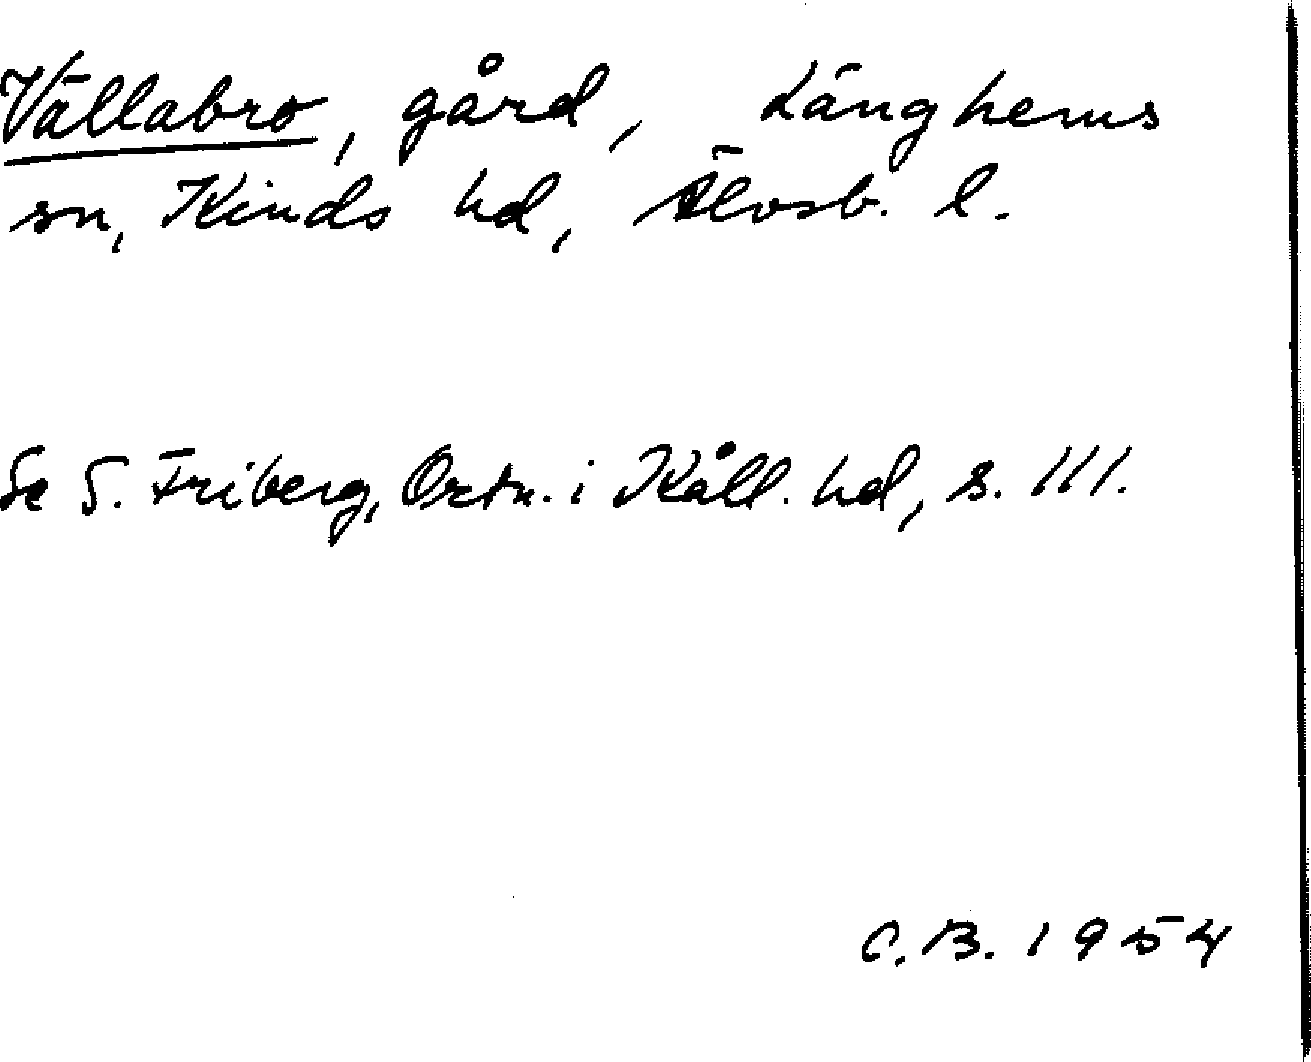 Vällabro, gård, Länghems
sn, Kinds hd, Älvsb. l.
Se S. Friberg, Ortn. i Kåll. hd, s. 111.
C.B. 1954